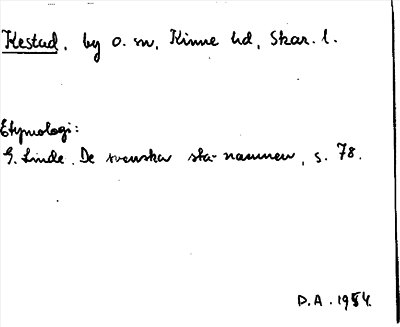 Kestad, by o. sn, Kinne hd, Skar. l.
Etymologi:
G. Linde. De svenska sta-namnen, s. 78.
D.A. 1954.